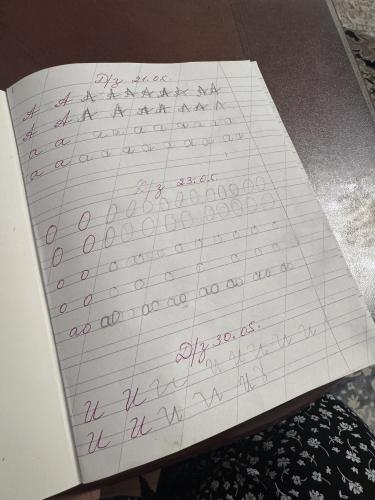 Д/з 21.05.
А А А А А А А А А А
А А А А А А А А А
а а а а а а а а а а
а а а а а а а а а а
Д/з 23.05.
О О О О О О О О О О О О
О О О О О О О О О О О О
о о о о о о о о о о
о о о о о о о о о
ао ао ао ао ао ао ао ао
Д/з 30.05.
И И И И И И И И
И И И И И